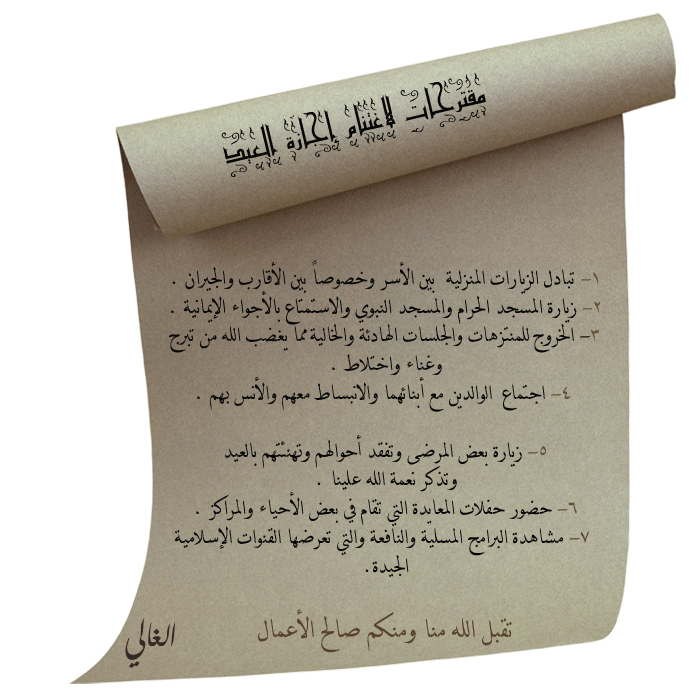 مقترحات لاغتنام إجازة العيد
١- تبادل الزيارات المنزلية بين الأسر وخصوصاً بين الأقارب والجيران .
٢- زيارة المسجد الحرام والمسجد النبوي والاستمتاع بالأجواء الإيمانية .
٣- الخروج للمنتزهات والجلسات الهادئة والخالية مما يغضب الله من تبرج
وغناء واختلاط .
٤- اجتماع الوالدين مع أبنائهما والانبساط معهم والأنس بهم .
٥- زيارة بعض المرضى وتفقد أحوالهم وتهنئتهم بالعيد
وتذكر نعمة الله علينا .
٦- حضور حفلات المعايدة التي تقام في بعض الأحياء والمراكز .
٧- مشاهدة البرامج المسلية والنافعة والتي تعرضها القنوات الإسلامية
الجيدة.
تقبل الله منا ومنكم صالح الأعمال
الغالي